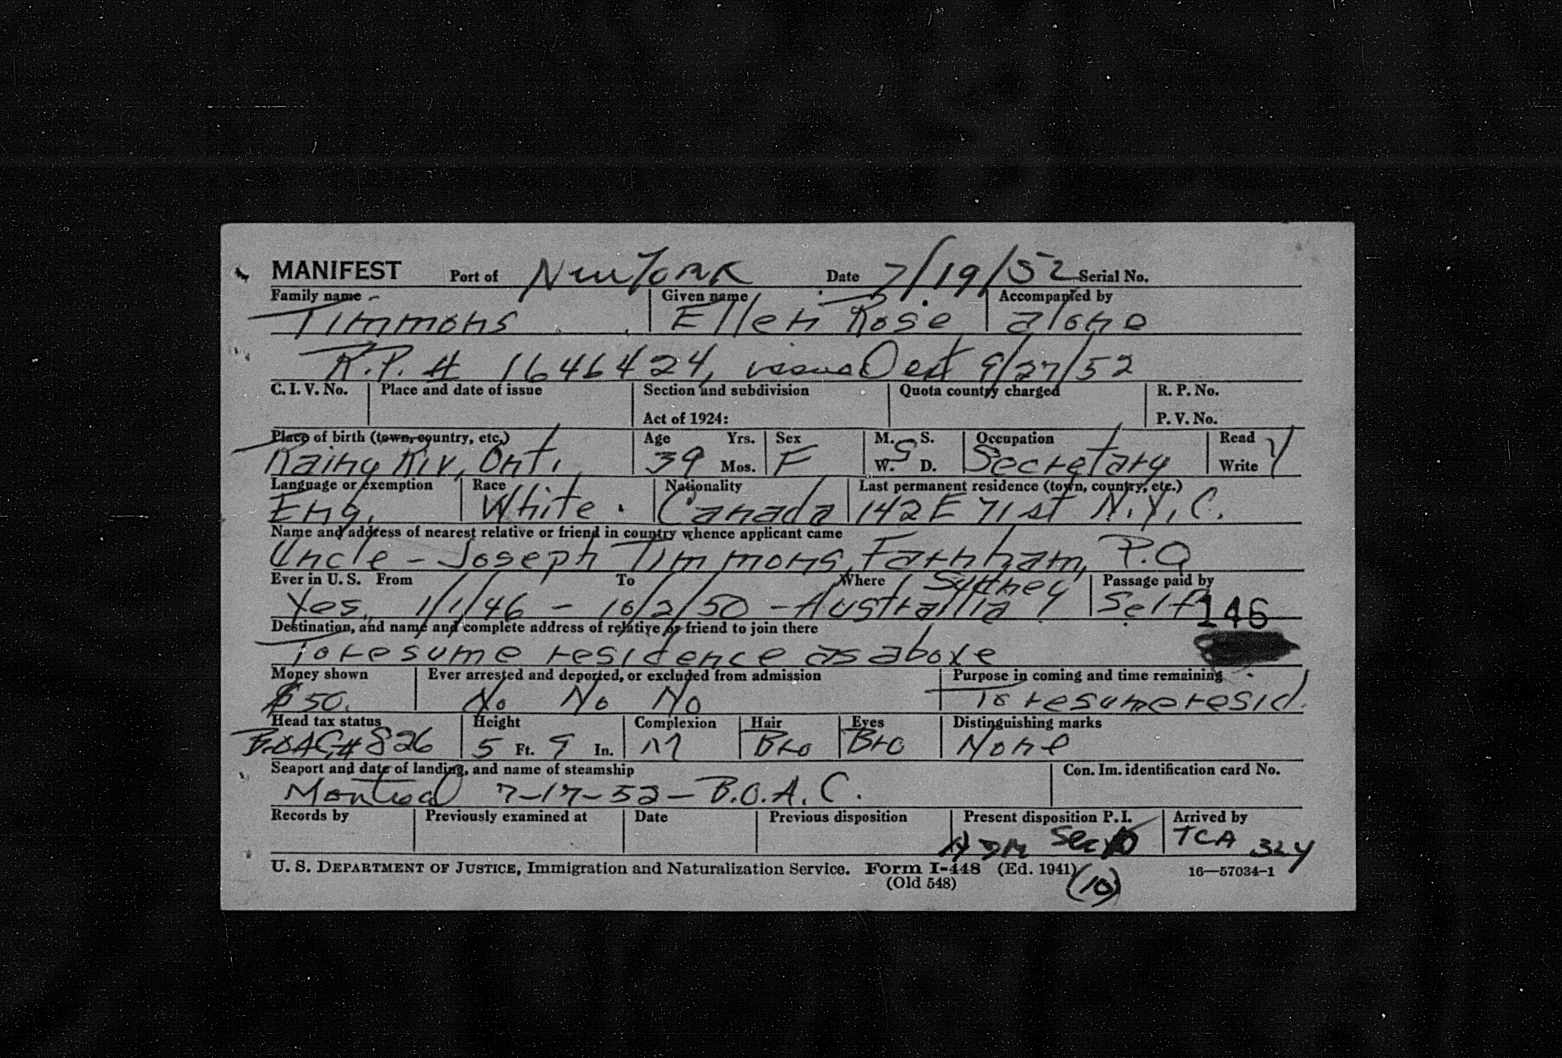 MANIFEST Port of New York Date 7/19/52 Serial No.
Family name Given name Accompanied by
Timmons Ellen Rose alone
R.P. # 1646424, issued 9/27/52
C. I. V. No. Place and date of issue Section and subdivision Quota country charged R. P. No.
Act of 1924: P. V. No.
Place of birth (town, country, etc.) Age Yrs. Sex M. S. Occupation Read
Rainy Riv, Ont. 39 Mos. F W. S D. Secretary Write Y
Language or exemption Race Nationality Last permanent residence (town, country, etc.)
Eng. White Canada 142 E 71 st N.Y.C.
Name and address of nearest relative or friend in country whence applicant came
Uncle - Joseph Timmons, Farnham, P.Q
Ever in U. S. From To Where Sydney Passage paid by
Yes. 1/1/46 - 10/2/50 - Australia Self 146
Destination, and name and complete address of relative or friend to join there
To resume residence as above
Money shown Ever arrested and deported, or excluded from admission Purpose in coming and time remaining
$50. No No No To resume resid.
Head tax status Height Complexion Hair Eyes Distinguishing marks
B.O.A.C # 826 5 Ft. 9 In. M Bro Bro None
Seaport and date of landing, and name of steamship Con. Im. identification card No.
Montreal 7-17-52 - B.O.A.C.
Records by Previously examined at Date Previous disposition Present disposition P. I. Arrived by
TCA 324
U. S. DEPARTMENT OF JUSTICE, Immigration and Naturalization Service. Form I-448 (Ed. 1941) 16—57034-1
(Old 548) (10)